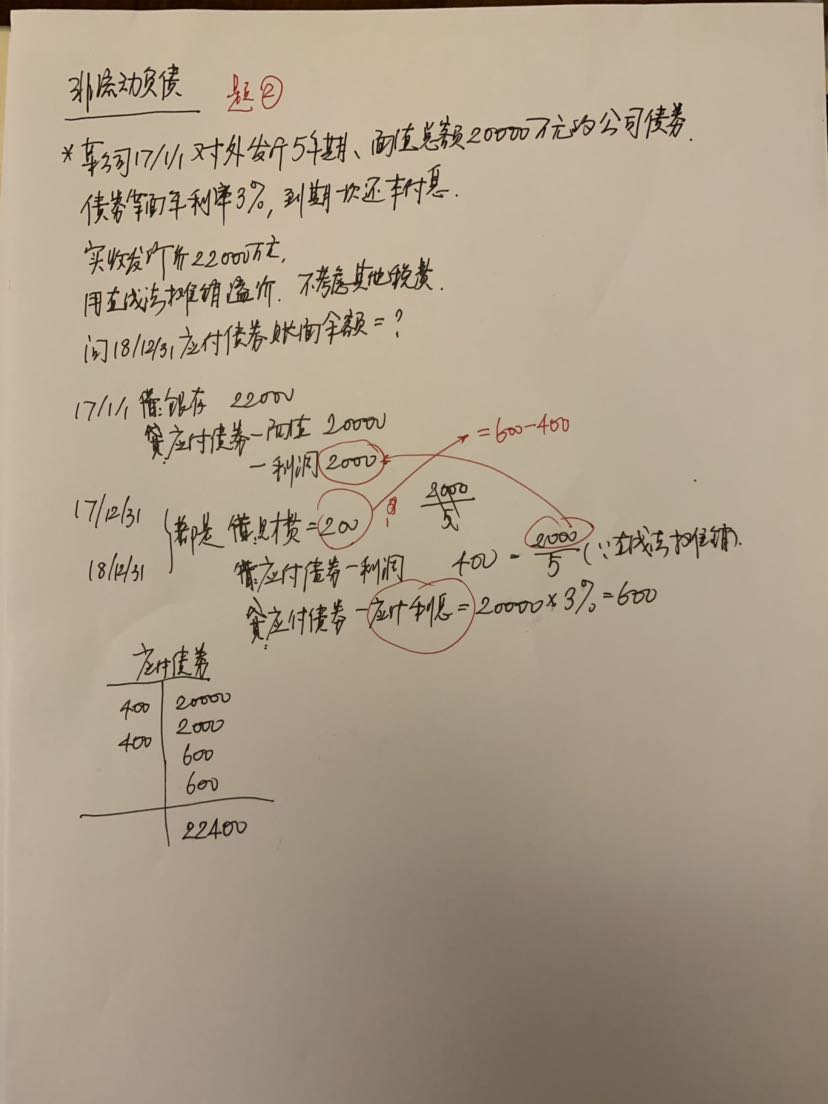 非流动负债 题②
*某公司17/1/1对外发行5年期、面值总额20000万元的公司债券.
债券年利率3%,到期一次还本付息.
实收发行价22000万元,
用直线法摊销溢价. 不考虑其他税费.
问18/12/31应付债券账面余额=?
17/1/1 借:银存 22000
贷:应付债券-面值 20000
-利调 2000
=600-400
17/12/31
18/12/31
都是 借: =200
2000/5
借:应付债券-利调 400 = 2000/5 (∵直线法摊销).
贷:应付债券-应计利息=20000×3%=600
应付债券
400 20000
400 2000
600
600
22400